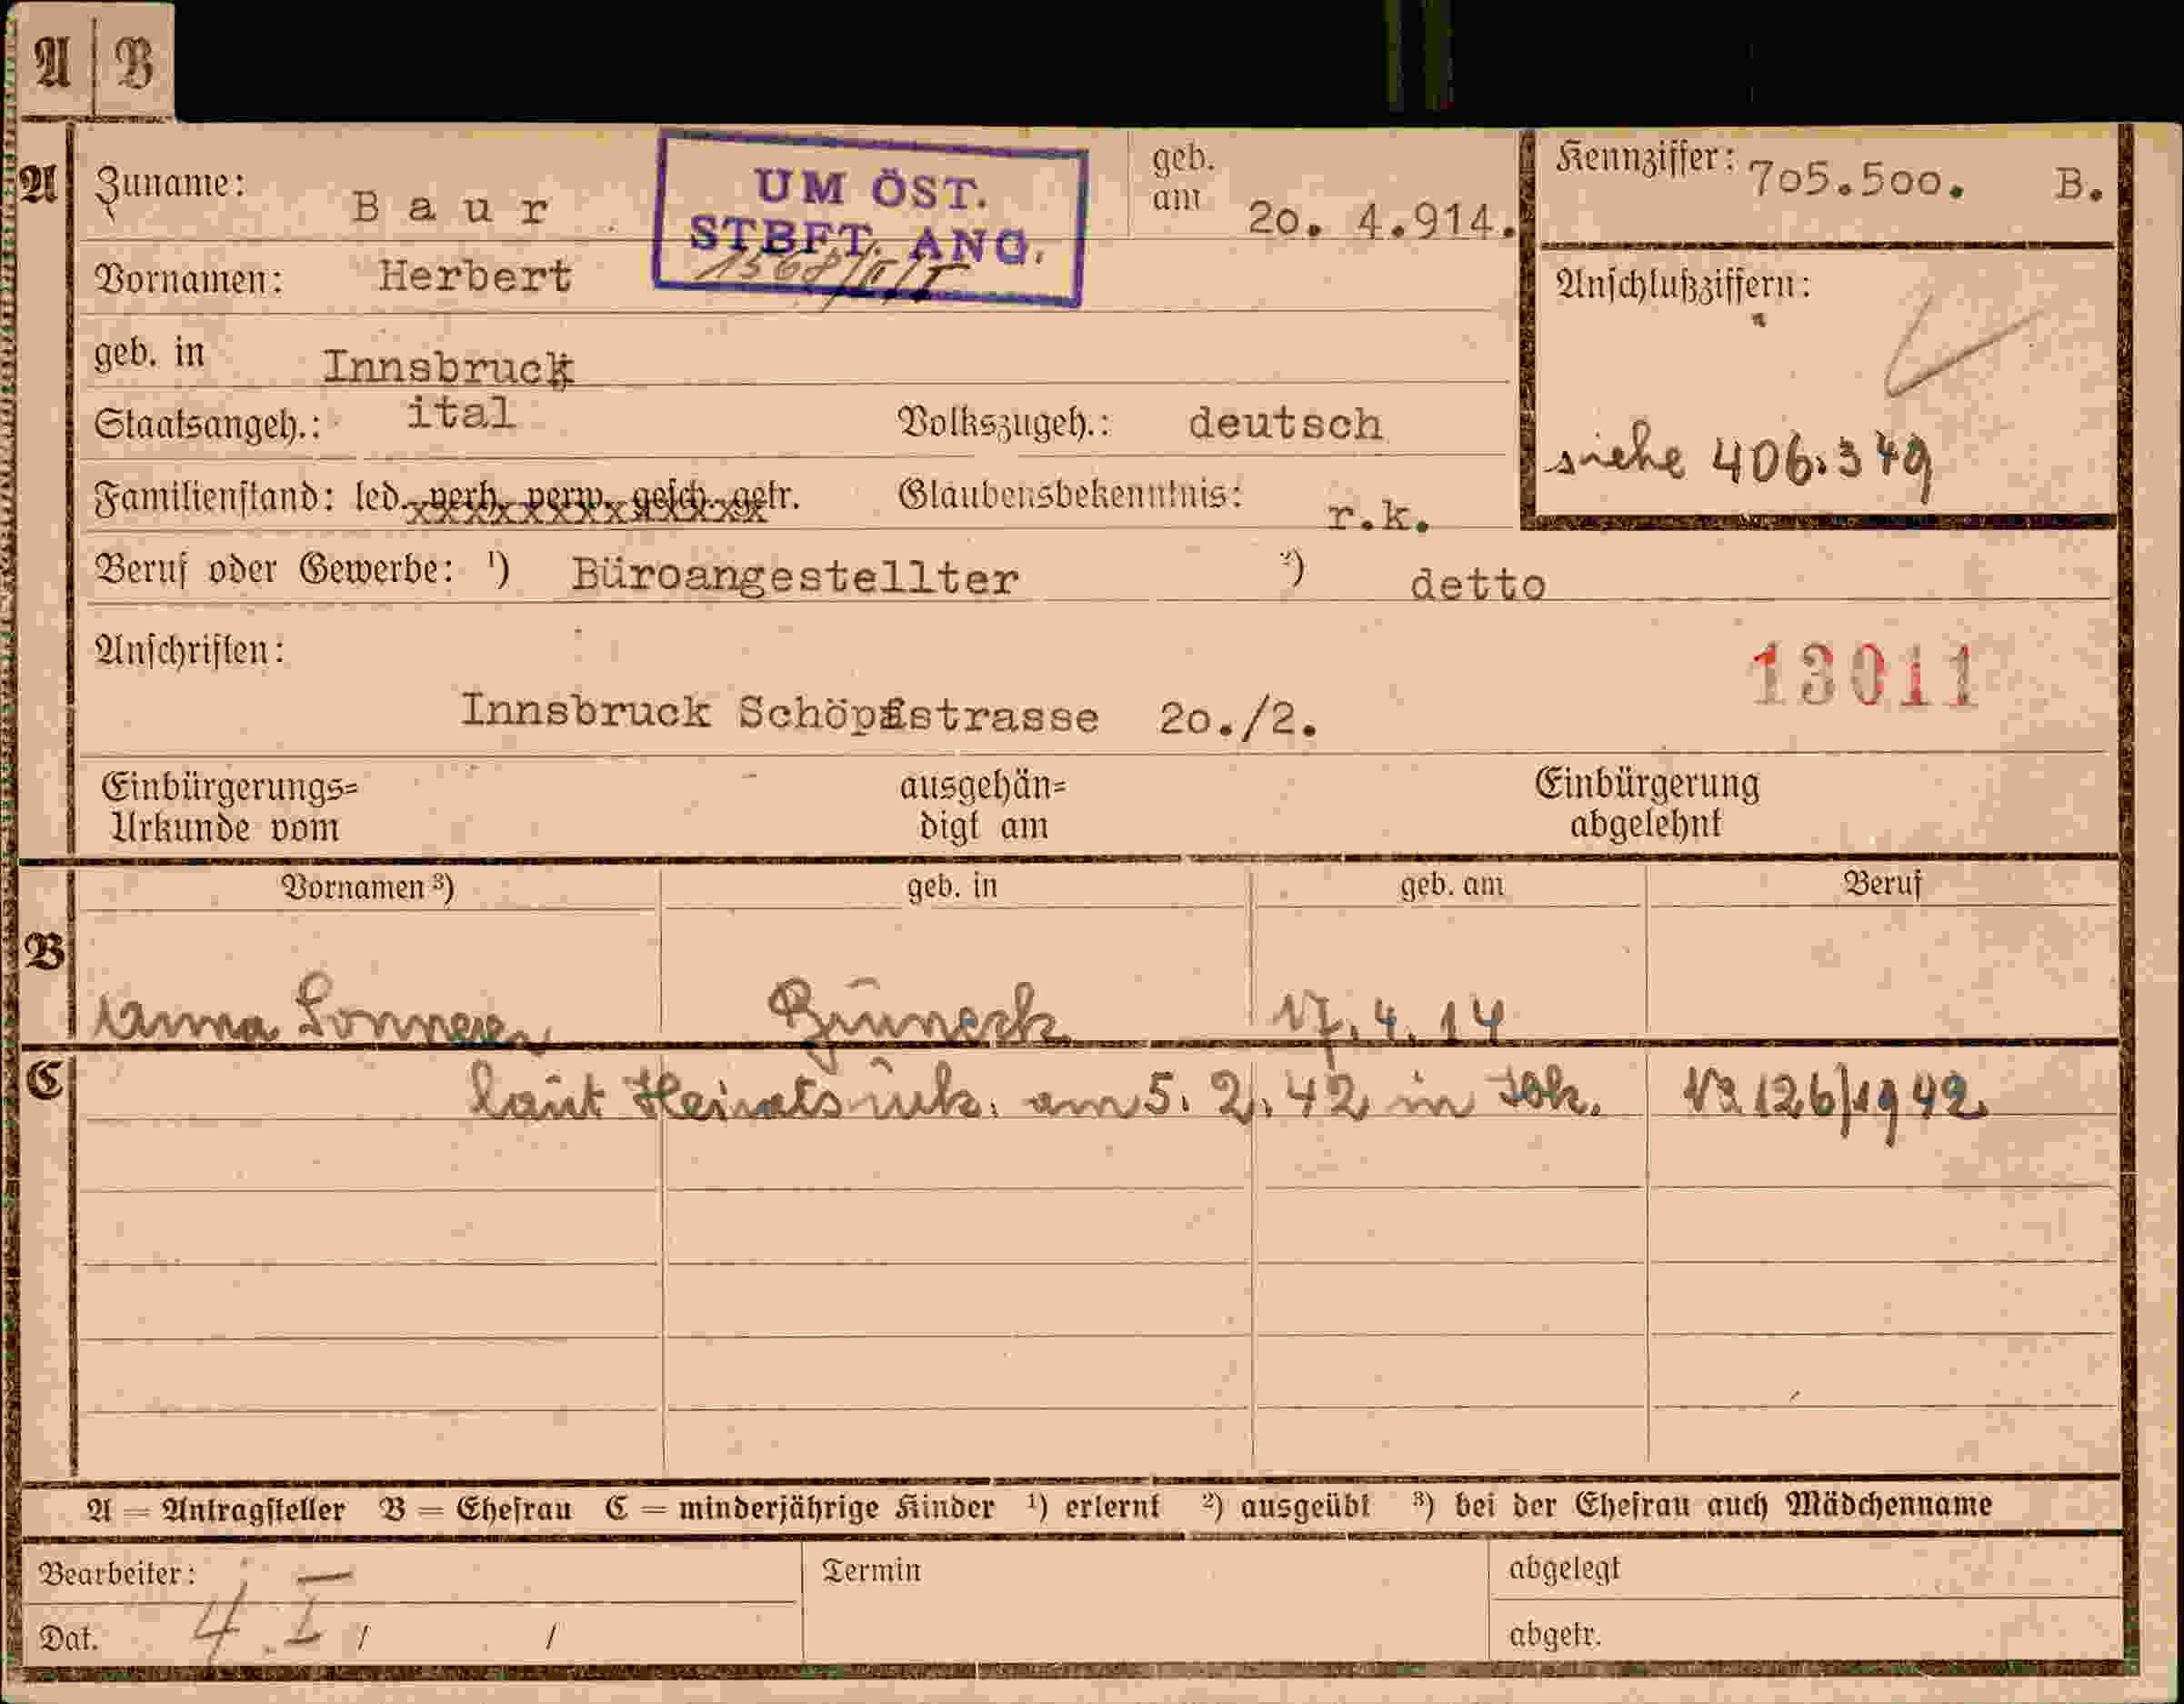 A | B
A
Zuname: Baur
UM ÖST.
STBFT. ANG.
1568/II/I
geb. am 20. 4.914.
Kennziffer: 705.500. B.
Vornamen: Herbert
Anschlußziffern:
geb. in Innsbruck
Staatsangeh.: ital Volkszugeh.: deutsch
siehe 406.349
Familienstand: led. verh. verw. gesch. getr. Glaubensbekenntnis: r.k.
Beruf oder Gewerbe: ¹) Büroangestellter ²) detto
Anschriften:
13011
Innsbruck Schöpfstrasse 20./2.
Einbürgerungs= ausgehän= Einbürgerung
Urkunde vom digt am abgelehnt
Vornamen ³) geb. in geb. am Beruf
B
Anna Bruneck 17.4.14
C
laut Heiratsurk. am 5.2.42 in Ibk. No 126/1942
A = Antragsteller B = Ehefrau C = minderjährige Kinder ¹) erlernt ²) ausgeübt ³) bei der Ehefrau auch Mädchenname
Bearbeiter: Termin abgelegt
Dat. 4. I / / abgetr.